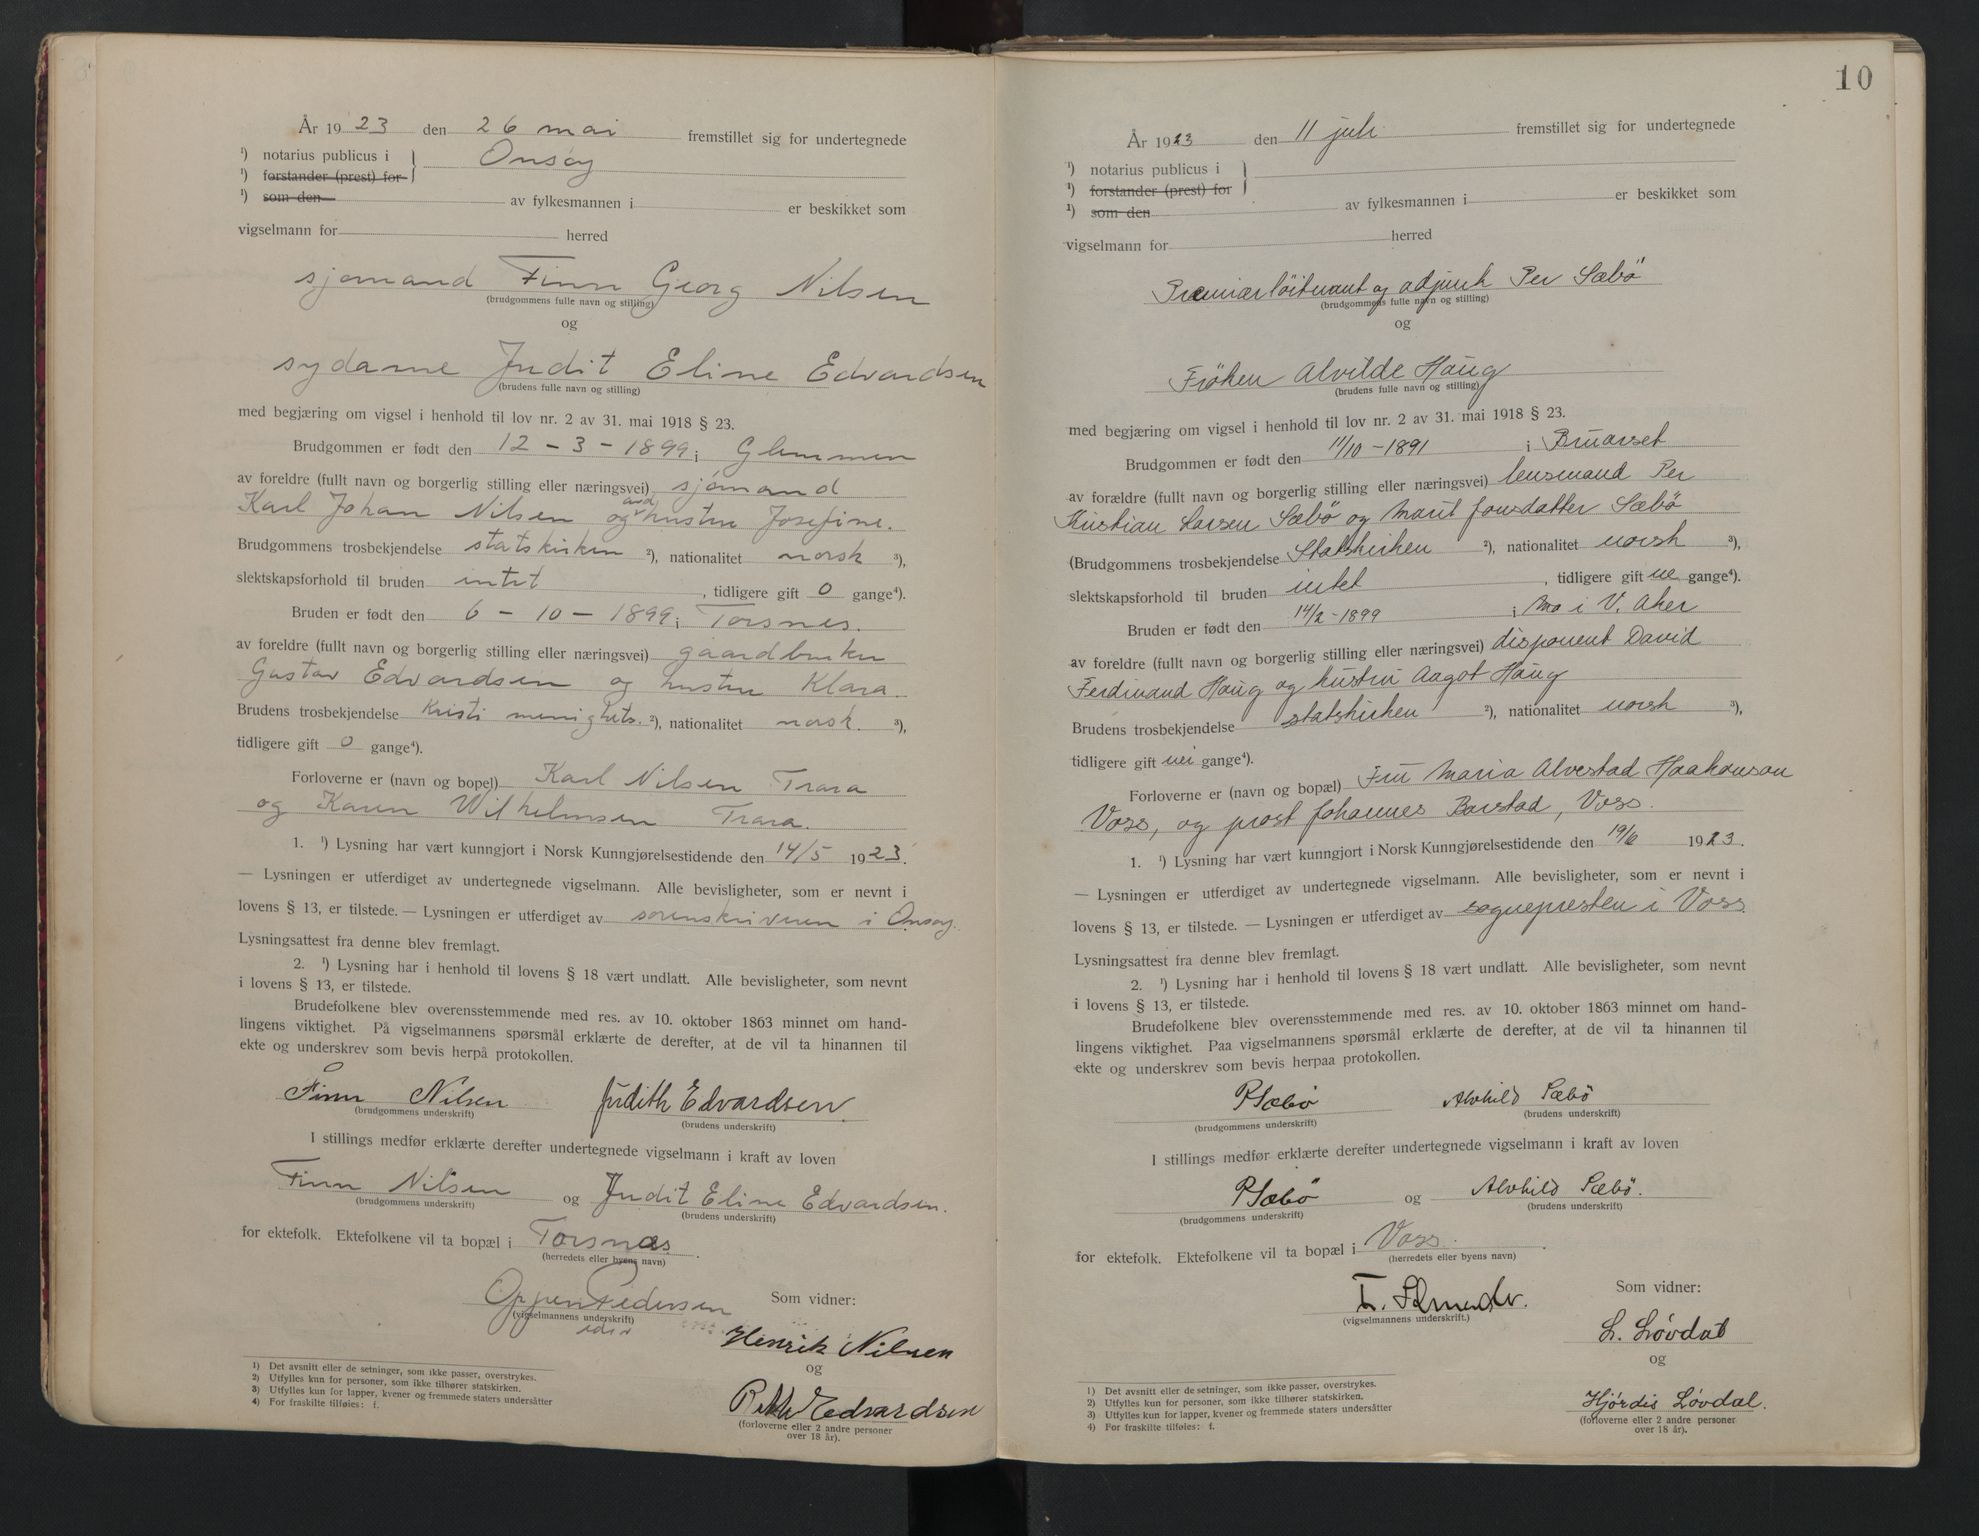 År 1923 den 26 mai fremstillet sig for undertegnede
¹) notarius publicus i Onsøy
¹) forstander (prest) for
¹) som den av fylkesmannen i er beskikket som
vigselmann for herred
sjømand Finn Georg Nilsen
(brudgommens fulle navn og stilling)
og
sydame Judit Eline Edvardsen
(brudens fulle navn og stilling)
med begjæring om vigsel i henhold til lov nr. 2 av 31. mai 1918 § 23.
Brudgommen er født den 12 - 3 - 1899 i Glemmen
av foreldre (fullt navn og borgerlig stilling eller næringsvei) sjømand
Karl Johan Nilsen og hustru Josefine.
Brudgommens trosbekjendelse statskirken ²), nationalitet norsk ³),
slektskapsforhold til bruden intet, tidligere gift 0 gange⁴).
Bruden er født den 6 - 10 - 1899 i Torsnes.
av foreldre (fullt navn og borgerlig stilling eller næringsvei) gaardbruker
Gustav Edvardsen og hustru Klara.
Brudens trosbekjendelse Kristi menighets. ²), nationalitet norsk. ³),
tidligere gift 0 gange⁴).
Forloverne er (navn og bopel) Karl Nilsen Trara
og Karen Wilhelmsen Trara.
1. ¹) Lysning har vært kunngjort i Norsk Kunngjørelsestidende den 14/5 1923.
— Lysningen er utferdiget av undertegnede vigselmann. Alle bevisligheter, som er nevnt i
lovens § 13, er tilstede. — Lysningen er utferdiget av sorenskriveren i Onsøy.
Lysningsattest fra denne blev fremlagt.
2. ¹) Lysning har i henhold til lovens § 18 vært undlatt. Alle bevisligheter, som nevnt
i lovens § 13, er tilstede.
Brudefolkene blev overensstemmende med res. av 10. oktober 1863 minnet om hand-
lingens viktighet. På vigselmannens spørsmål erklærte de derefter, at de vil ta hinannen til
ekte og underskrev som bevis herpå protokollen.
Finn Nilsen Judith Edvardsen
(brudgommens underskrift) (brudens underskrift)
I stillings medfør erklærte derefter undertegnede vigselmann i kraft av loven
Finn Nilsen og Judit Eline Edvardsen.
(brudgommens underskrift) (brudens underskrift)
for ektefolk. Ektefolkene vil ta bopæl i Torsnæs.
(herredets eller byens navn)
Oppen Pedersen Som vidner:
(vigselmannens underskrift)
Henrik Nilsen
og
Edvardsen
(forloverne eller 2 andre personer
over 18 år).
1) Det avsnitt eller de setninger, som ikke passer, overstrykes.
2) Utfylles kun for personer, som ikke tilhører statskirken.
3) Utfylles kun for lapper, kvener og fremmede staters undersåtter
4) For fraskilte tilføies: f.
10
År 1923 den 11 juli fremstillet sig for undertegnede
¹) notarius publicus i
¹) forstander (prest) for
¹) som den av fylkesmannen i er beskikket som
vigselmann for herred
Premiærløitnant og adjunk Per Sæbö
(brudgommens fulle navn og stilling)
og
Fröken Alvilde Haug
(brudens fulle navn og stilling)
med begjæring om vigsel i henhold til lov nr. 2 av 31. mai 1918 § 23.
Brudgommen er født den 11/10 - 1891 i Bruavset
av forældre (fullt navn og borgerlig stilling eller næringsvei) lensmand Per
Kristian Larsen Sæbö og Marit Jonsdatter Sæbö
(Brudgommens trosbekjendelse Statskirken ²), nationalitet norsk ³),
slektskapsforhold til bruden intet, tidligere gift nei gange⁴).
Bruden er født den 14/2 - 1899 i Mo i V. Aker
av foreldre (fullt navn og borgerlig stilling eller næringsvei) disponent David
Ferdinand Haug og hustru Aagot Haug
Brudens trosbekjendelse statskirken ²), nationalitet norsk ³),
tidligere gift nei gange⁴).
Forloverne er (navn og bopæl) Fru Maria Alvestad Haakonson
Voss, og prost Johannes Barstad, Voss.
1. ¹) Lysning har vært kunngjort i Norsk Kunngjørelsestidende den 19/6 1923.
— Lysningen er utferdiget av undertegnede vigselmann. Alle bevisligheter, som er nevnt i
lovens § 13, er tilstede. — Lysningen er utferdiget av sognepresten i Voss
Lysningsattest fra denne blev fremlagt.
2. ¹) Lysning har i henhold til lovens § 18 vært undlatt. Alle bevisligheter, som nevnt
i lovens § 13, er tilstede.
Brudefolkene blev overensstemmende med res. av 10. oktober 1863 minnet om hand-
lingens viktighet. Paa vigselmannens spørsmål erklærte de derefter, at de vil ta hinannen til
ekte og underskrev som bevis herpaa protokollen.
P Sæbø Alvhild Sæbø
(brudgommens underskrift) (brudens underskrift)
I stillings medfør erklærte derefter undertegnede vigselmann i kraft av loven
P Sæbø og Alvhild Sæbø.
(brudgommens underskrift) (brudens underskrift)
for ektefolk. Ektefolkene vil ta bopæl i Voss.
(herredets eller byens navn)
Som vidner:
(vigselmannens underskrift.)
L. Løvdal
og
Hjørdis Løvdal.
(forloverne eller 2 andre personer
over 18 år).
1) Det avsnitt eller de setninger, som ikke passer, overstrykes.
2) Utfylles kun for personer, som ikke tilhører statskirken.
3) Utfylles kun for lapper, kvener og fremmede staters undersåtter
4) For fraskilte tilføies: f.